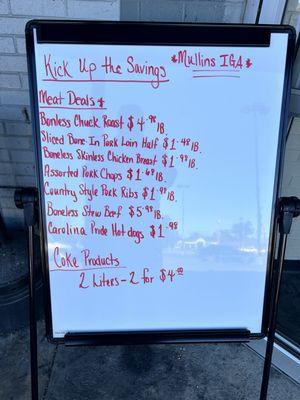 Kick Up the Savings *Mullins IGA*
Meat Deals*
Bonless Chuck Roast $4.98 LB.
Sliced Bone In Pork Loin Half $1.48 LB.
Boneless Skinless Chicken Breast $1.98 LB.
Assorted Pork Chops $1.68 LB.
Country Style Pork Ribs $1.98 LB.
Boneless Stew Beef $5.98 LB.
Carolina Pride Hot dogs $1.98
Coke Products
2 Liters - 2 for $4.00